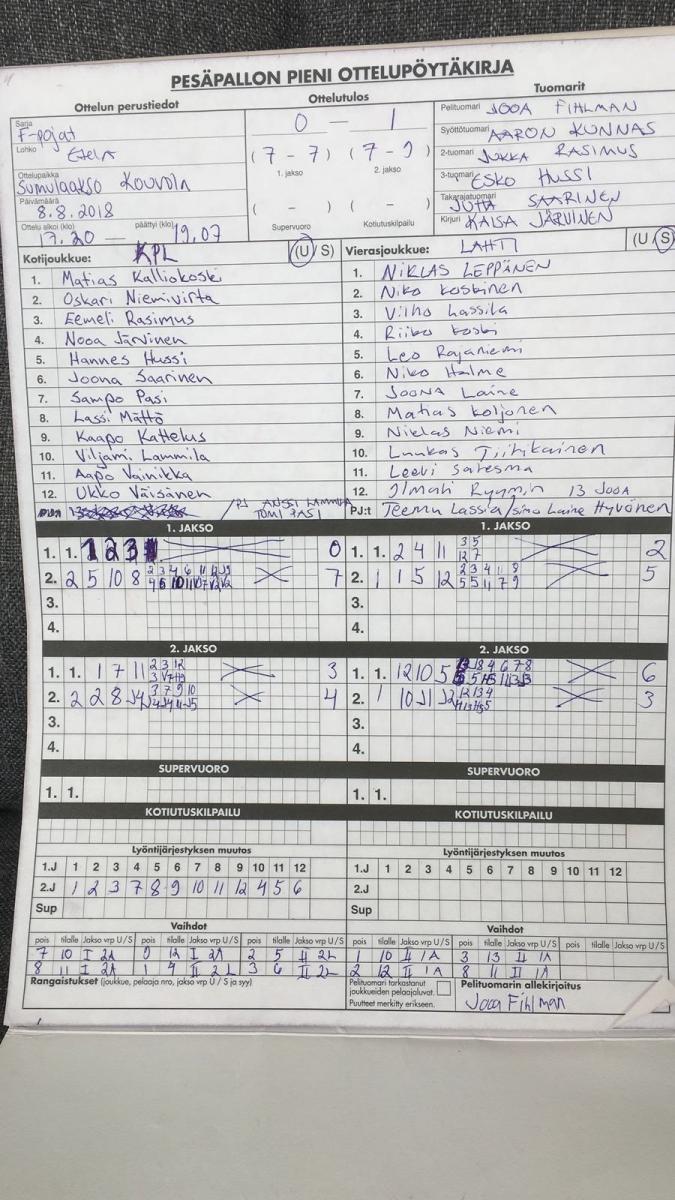 PESÄPALLON PIENI OTTELUPÖYTÄKIRJA
Ottelun perustiedot
Sarja
F-pojat
Lohko
Etelä
Ottelupaikka
Päivämäärä
8.8.2018
Ottelu alkoi (klo) päättyi (klo)
17.20 — 19.07
Ottelutulos
0 — 1
( 7 - 7 ) ( 7 - 9 )
1. jakso 2. jakso
( - ) ( - )
Supervuoro Kotiutuskilpailu
Tuomarit
Pelituomari JOOA FIHLMAN
Syöttötuomari AARON KUNNAS
2-tuomari JUKKA RASIMUS
3-tuomari ESKO HUSSI
Takarajatuomari JUTTA SAARINEN
Kirjuri KAISA JÄRVINEN
Kotijoukkue: KPL (U/S)
1. Matias Kalliokoski
2. Oskari Niemivirta
3. Eemeli Rasimus
4. Nooa Järvinen
5. Hannes Hussi
6. Joona Saarinen
7. Sampo Pasi
8. Lassi Mättö
9. Kaapo Kattelus
10. Viljami Lammila
11. Aapo Vainikka
12. Ukko Väisänen
PJ:t
PJ ANSSI LAMMILA
TOMI PASI
Vierasjoukkue: LAHTI (U/S)
1. NIKLAS LEPPÄNEN
2. Niko Koskinen
3. Vilho Lassila
4. Riiko Koski
5. Leo Rajaniemi
6. Niko Halme
7. JOONA Laine
8. Matias Koljonen
9. Niklas Niemi
10. Luukas Tiihikainen
11. Leevi Salesma
12. Ilmari Ryymin 13 JOOA
PJ:t Teemu Lassila/Simo Laine Hyvönen
1. JAKSO
1. 1. 1 2 3 0
2. 2 5 10 8 7
3.
4.
1. JAKSO
1. 1. 2 4 11 3 5 12 7 2
2. 1 1 5 12 5
3.
4.
2. JAKSO
1. 1. 1 7 11 2 3 12 3
2. 2 2 8 3 7 9 10 4
3.
4.
2. JAKSO
1. 1. 12 10 5 6
2. 1 10 3
3.
4.
SUPERVUORO
1. 1.
SUPERVUORO
1. 1.
KOTIUTUSKILPAILU
KOTIUTUSKILPAILU
Lyöntijärjestyksen muutos
1.J 1 2 3 4 5 6 7 8 9 10 11 12
2.J 1 2 3 7 8 9 10 11 12 4 5 6
Sup
Lyöntijärjestyksen muutos
1.J 1 2 3 4 5 6 7 8 9 10 11 12
2.J
Sup
Vaihdot
pois tilalle Jakso vrp U/S pois tilalle Jakso vrp U/S pois tilalle Jakso vrp U/S
7 10 I 2A 9 12 I 2A 2 5 II 2L
8 11 I 2A 1 4 II 2L 3 6 II 2L
Vaihdot
pois tilalle Jakso vrp U/S pois tilalle Jakso vrp U/S pois tilalle Jakso vrp U/S
1 10 II 1A 3 13 II 1A
2 12 II 1A 8 11 II 1A
Rangaistukset (joukkue, pelaaja nro, jakso vrp U / S ja syy)
Pelituomari tarkastanut
joukkueiden pelaajaluvat.
Puutteet merkitty erikseen.
Pelituomarin allekirjoitus
Jooa Fihlman